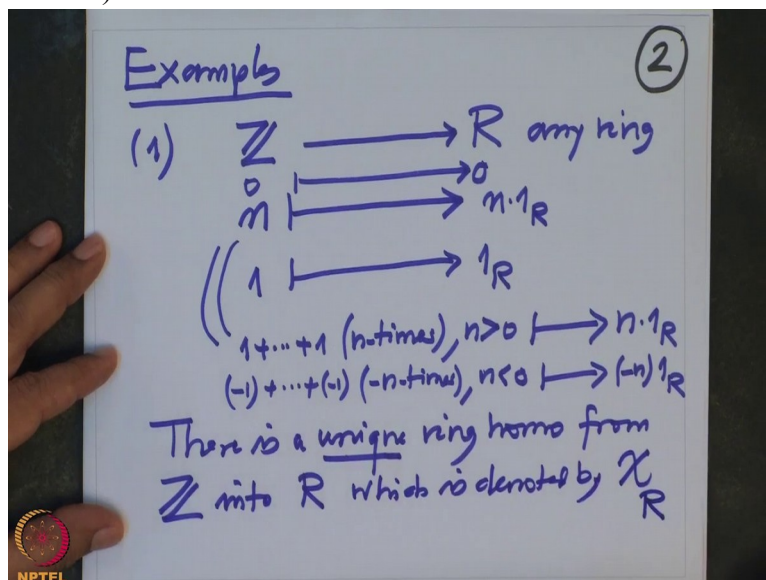 )
Examples
2
(1) ℤ ⟶ R any ring
0 ⟼ 0
n ⟼ n·1_R
1 ⟼ 1_R
1+···+1 (n-times), n>0 ⟼ n·1_R
(-1)+···+(-1) (-n-times), n<0 ⟼ (-n)1_R
There is a unique ring homo from
ℤ into R which is denoted by χ_R
NPTEL